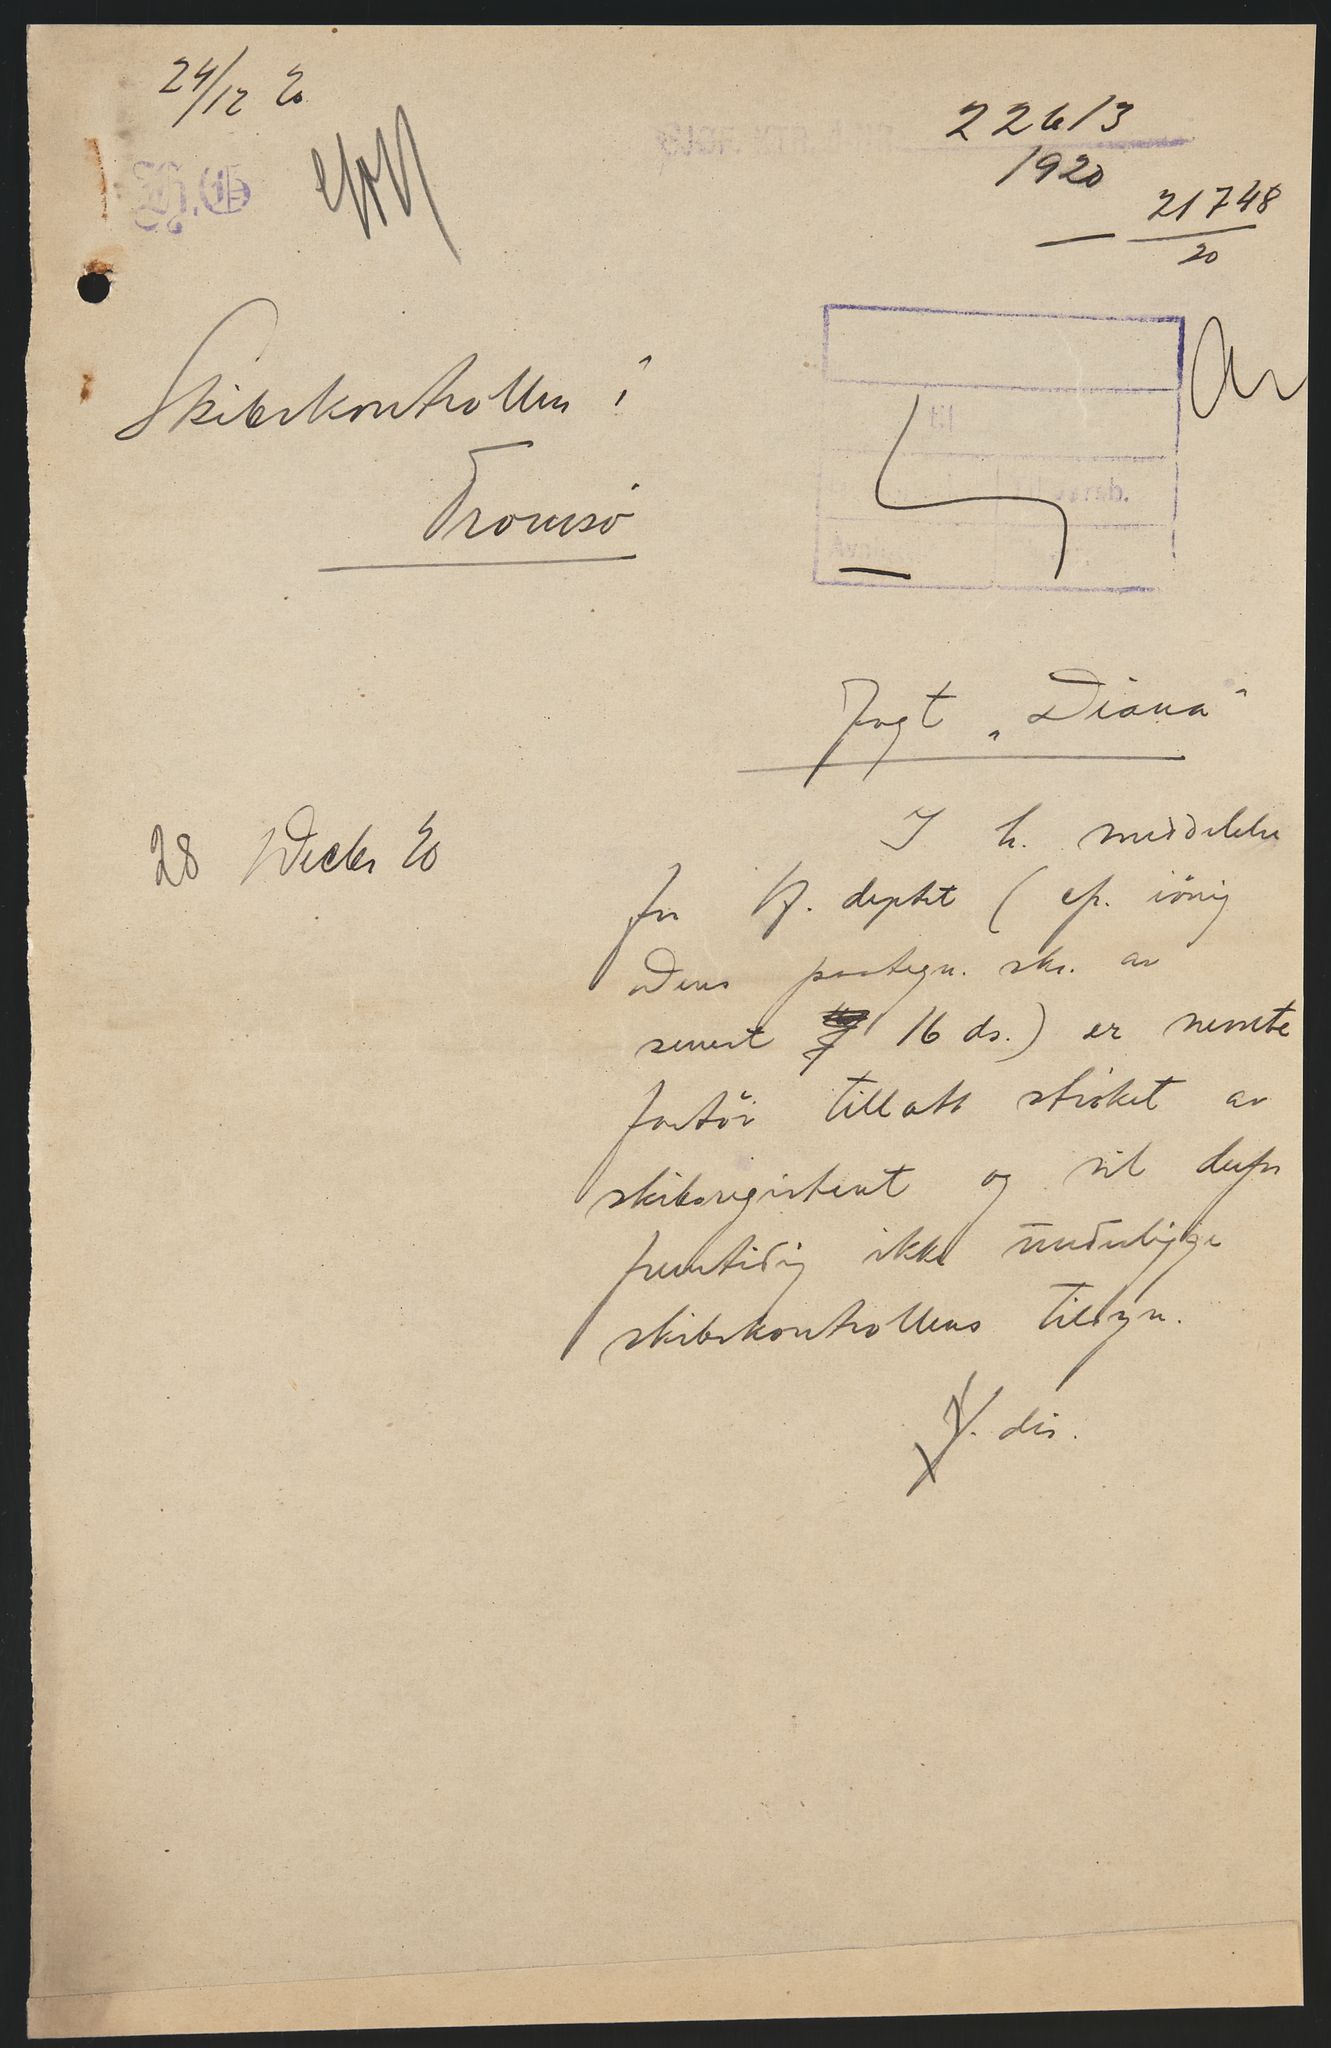 24/12 20
H.G
SJØF. KTR.
22613
1920
21748
20
Skibskontrollen i
Tromsö
til
Jagt „Diana"
28 Decbr 20
I h. meddelelse
fra H. deptet (cfr. iövrig
Deres paategn. skr. av
senest 16 ds.) er nevnte
fartöi tillatt ströket av
skibsregisteret og vil derfor
fremtidig ikke underligge
skibskontrollens tilsyn.
F. dir.